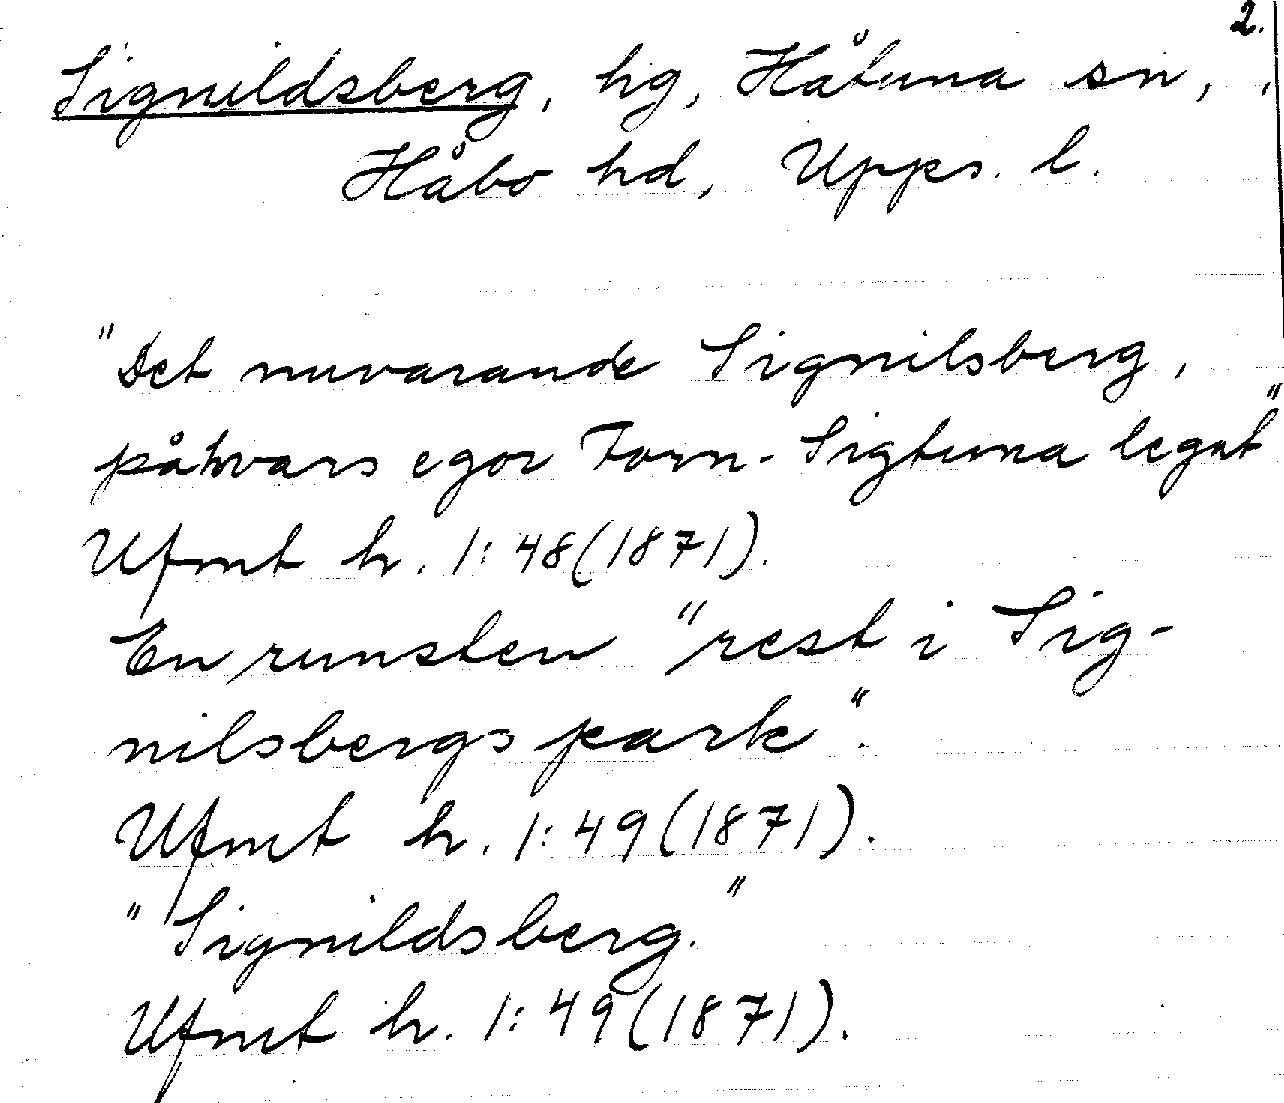 2.
Signildsberg, hg, Håtuna sn,
Håbo hd, Upps. l.
"Det nuvarande Signilsberg,
påhvars egor Forn-Sigtuna legat"
Ufmt h. 1:48(1871).
En runsten "rest i Sig-
nilsbergs park".
Ufmt h. 1:49(1871).
"Signildsberg."
Ufmt h. 1:49(1871).